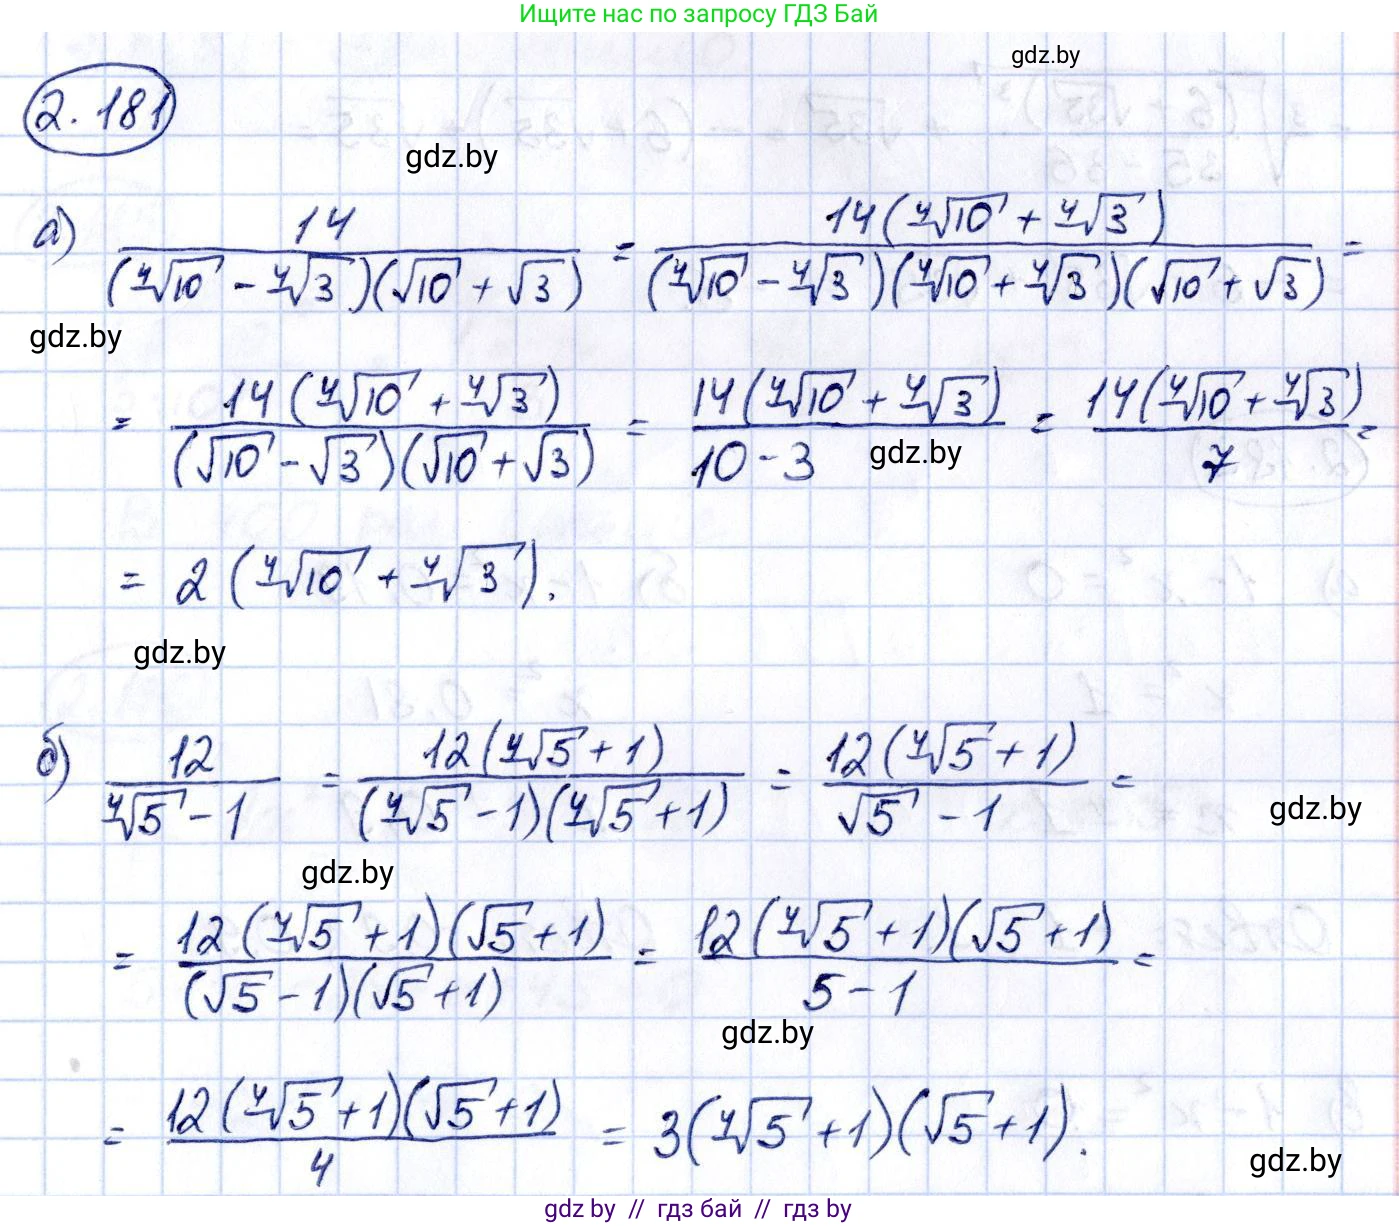 Ищите нас по запросу ГДЗ Бай
gdz.by
2.181
gdz.by
а) 14 / ((⁴√10 - ⁴√3)(√10 + √3)) = 14(⁴√10 + ⁴√3) / ((⁴√10 - ⁴√3)(⁴√10 + ⁴√3)(√10 + √3)) =
gdz.by
= 14(⁴√10 + ⁴√3) / ((√10 - √3)(√10 + √3)) = 14(⁴√10 + ⁴√3) / (10 - 3) = 14(⁴√10 + ⁴√3) / 7 =
gdz.by
= 2(⁴√10 + ⁴√3).
gdz.by
б) 12 / (⁴√5 - 1) = 12(⁴√5 + 1) / ((⁴√5 - 1)(⁴√5 + 1)) = 12(⁴√5 + 1) / (√5 - 1) =
gdz.by
gdz.by
= 12(⁴√5 + 1)(√5 + 1) / ((√5 - 1)(√5 + 1)) = 12(⁴√5 + 1)(√5 + 1) / (5 - 1) =
gdz.by
= 12(⁴√5 + 1)(√5 + 1) / 4 = 3(⁴√5 + 1)(√5 + 1).
gdz.by
gdz by // гдз бай // гдз by